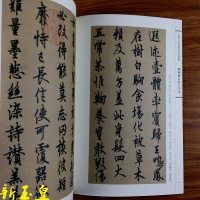 遐迩壹體率賓歸王鳴鳳
在樹白駒食場化被草木
賴及萬方蓋此身髮四大
五常恭惟鞠養豈敢毀傷
必改得能莫忘罔談彼短
靡恃己長信使可覆器欲
難量墨悲絲染詩讚羔
新玉皇